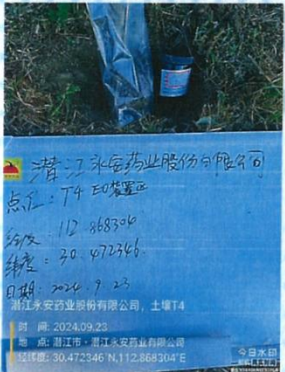 潜江永安药业股份有限公司
点位：T4 EO装置区
经度：112.868304
纬度：30.472346.
日期：2024.9.23
潜江永安药业股份有限公司，土壤T4
时 间：2024.09.23
地 点：潜江市·潜江永安药业有限公司
经纬度：30.472346°N,112.868304°E
今日水印